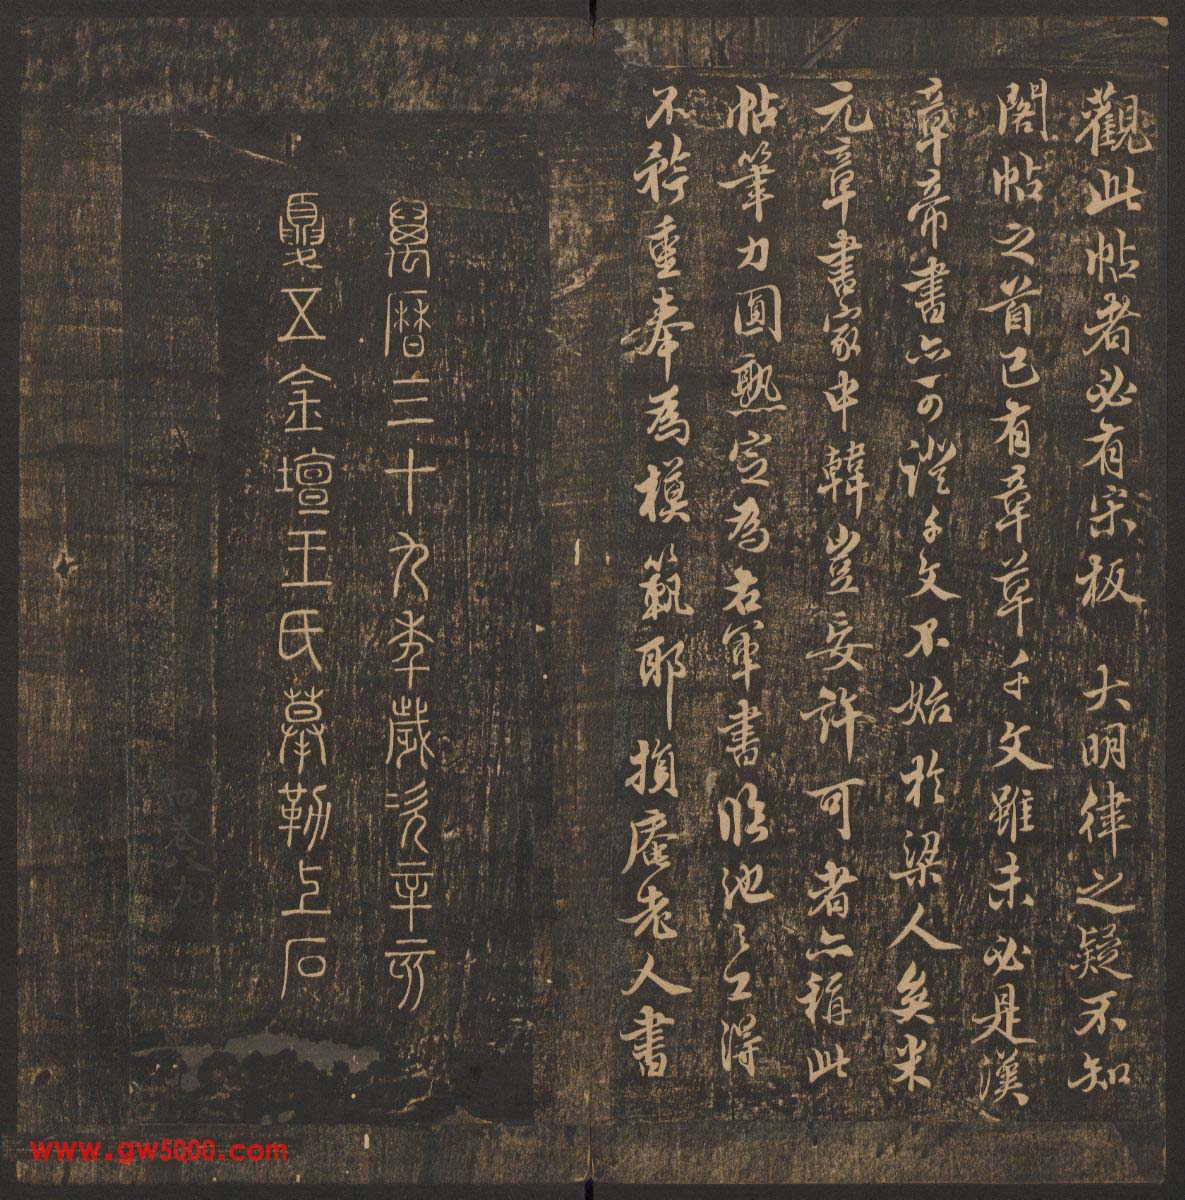 觀此帖者必有宋板 大明律之疑不知
閣帖之首已有章草千文雖未必是漢
章帝書亦可證千文不始於梁人矣米
元章書家中韓豈妄許可者亦稱此
帖筆力圓熟定為右軍書臨池之工得
不矜重奉為模範耶損庵老人書
萬曆三十九年歲次辛亥
夏五金壇王氏摹勒上石
四卷八九
www.gw5000.com